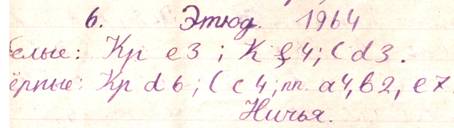 6. Этюд. 1964
белые: Кр e3; К f4; С d3.
ёрные: Кр d6; С c4; пп. a4, b2, e7
Ничья.